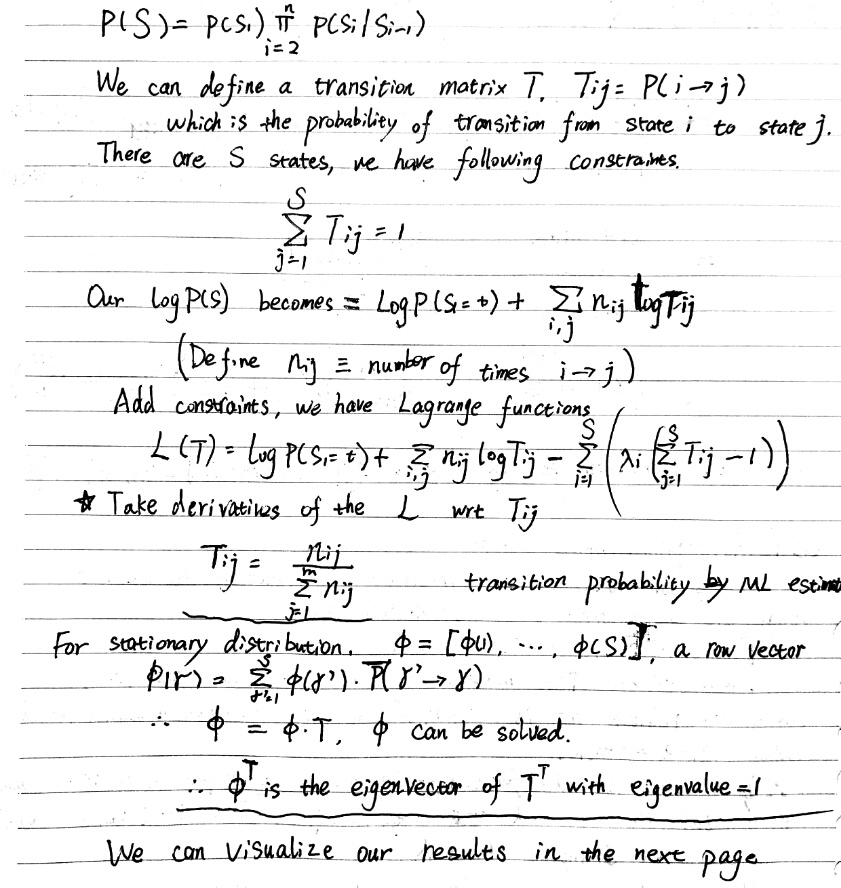 P(S) = P(S₁) ∏_{i=2}^{n} P(Si | Si-1)
We can define a transition matrix T, Tij = P(i→j)
which is the probability of transition from state i to state j.
There are S states, we have following constraints.
∑_{j=1}^{S} Tij = 1
Our log P(S) becomes = Log P(S₁=t) + ∑_{i,j} nij log Tij
(Define nij ≡ number of times i→j)
Add constraints, we have Lagrange functions
L(T) = log P(S₁=t) + ∑_{i,j} nij log Tij − ∑_{i=1}^{S} (λi (∑_{j=1}^{S} Tij − 1))
★ Take derivatives of the L wrt Tij
Tij = nij / ∑_{j=1}^{m} nij transition probability by ML estima
For stationary distribution. ϕ = [ϕ(1), ..., ϕ(S)], a row vector
ϕ(γ) = ∑_{γ'=1}^{S} ϕ(γ') · P(γ'→γ)
∴ ϕ = ϕ·T, ϕ can be solved.
∴ ϕ^T is the eigenvector of T^T with eigenvalue = 1
We can visualize our results in the next page